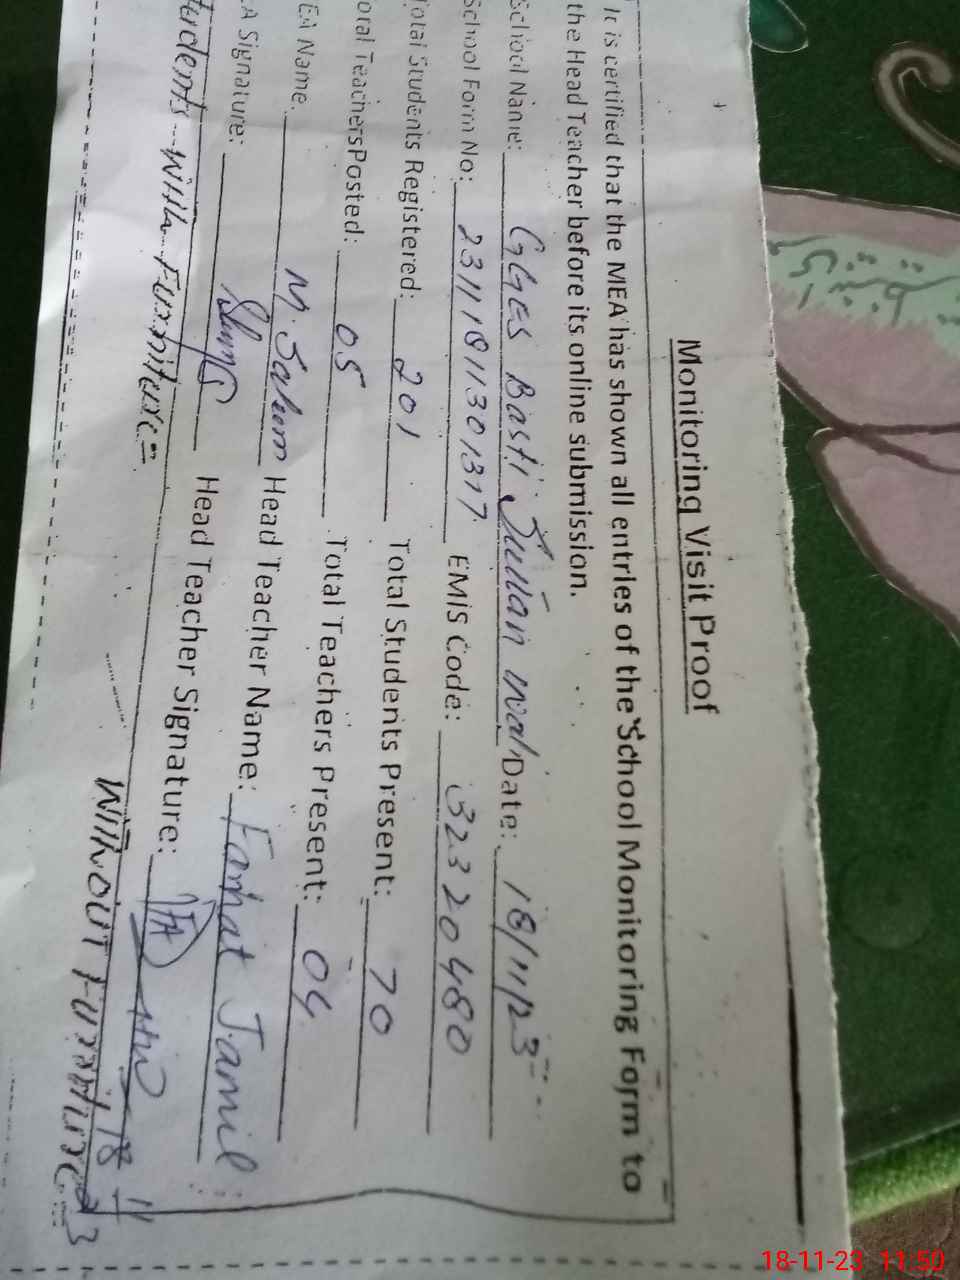 Monitoring Visit Proof
It is certified that the MEA has shown all entries of the School Monitoring Form to
the Head Teacher before its online submission.
School Name: GGES Basti Sultan wah Date: 18/11/23
School Form No: 23111811301317 EMIS Code: 32320480
Total Students Registered: 201 Total Students Present: 70
oral Teachers Posted: 05 Total Teachers Present: 04
EA Name: M. Salum Head Teacher Name: Farhat Jamil
EA Signature: Head Teacher Signature:
18/11/23
turdents With Furniture= Without Furniture=
18-11-23 11:50